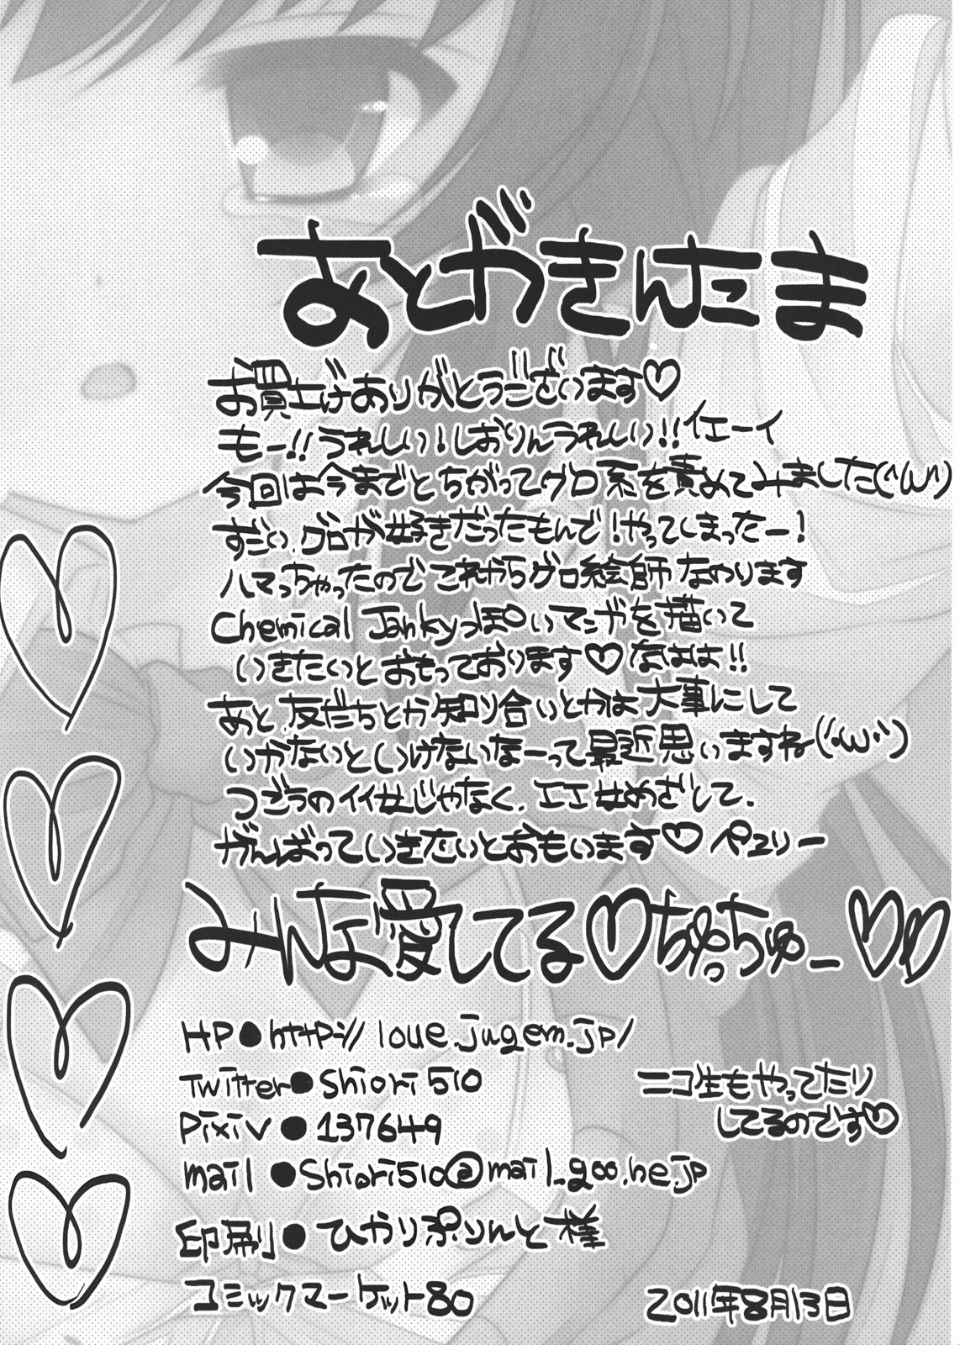 あとがきんたま
お買上げありがとうございます♡
もー!!うれしい!しおりんうれしい!!イエーイ
今回は今までとちがってグロ系を責めてみました(´ω`)
すごいグロが好きだったもんで!やってしまったー!
ハマっちゃったのでこれからグロ絵師なのります
Chemical Jankyっぽいマンガを描いて
いきたいとおもっております♡なはは!!
あと、友だちとか知り合いとかは大事にして
いかないといけないなーって最近思いますね(´ω`)
つごうのイイ女じゃなく、エエ女めざして、
がんばっていきたいとおもいます♡ペュリー
みんな愛してる♡ちゅっちゅー♡♡
HP●http://loue.jugem.jp/
Twitter●Shiori510
Pixiv●137649
ニコ生もやってたり
してるのです♡
mail●Shiori510@mail.goo.ne.jp
印刷●ひかりぷりんと様
コミックマーケット80
2011年8月13日